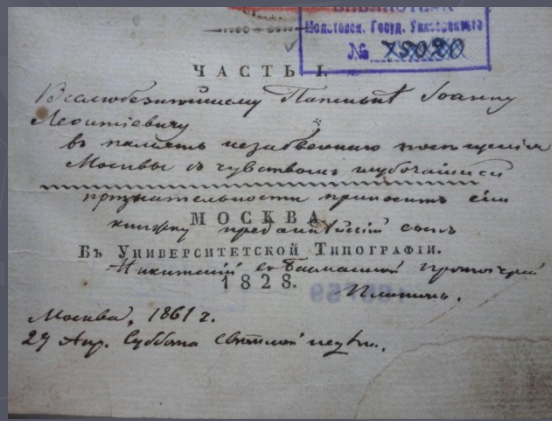 БИБЛИОТЕКА
Молотовск. Госуд. Университета
№ 75020
ЧАСТЬ I.
Вселюбезнѣйшему Папинькѣ Іоанну
Леонтіевичу
въ память незабвеннаго посещенія
Москвы съ чувствомъ глубочайшей
признательности приноситъ сію
МОСКВА
книжку преданнѣйшій сынъ
Въ Университетской Типографіи.
Никитскій въ Басманной протоіерей
1828.
Москва, 1861 г.
29 Апр. Суббота Свѣтлой недѣли.